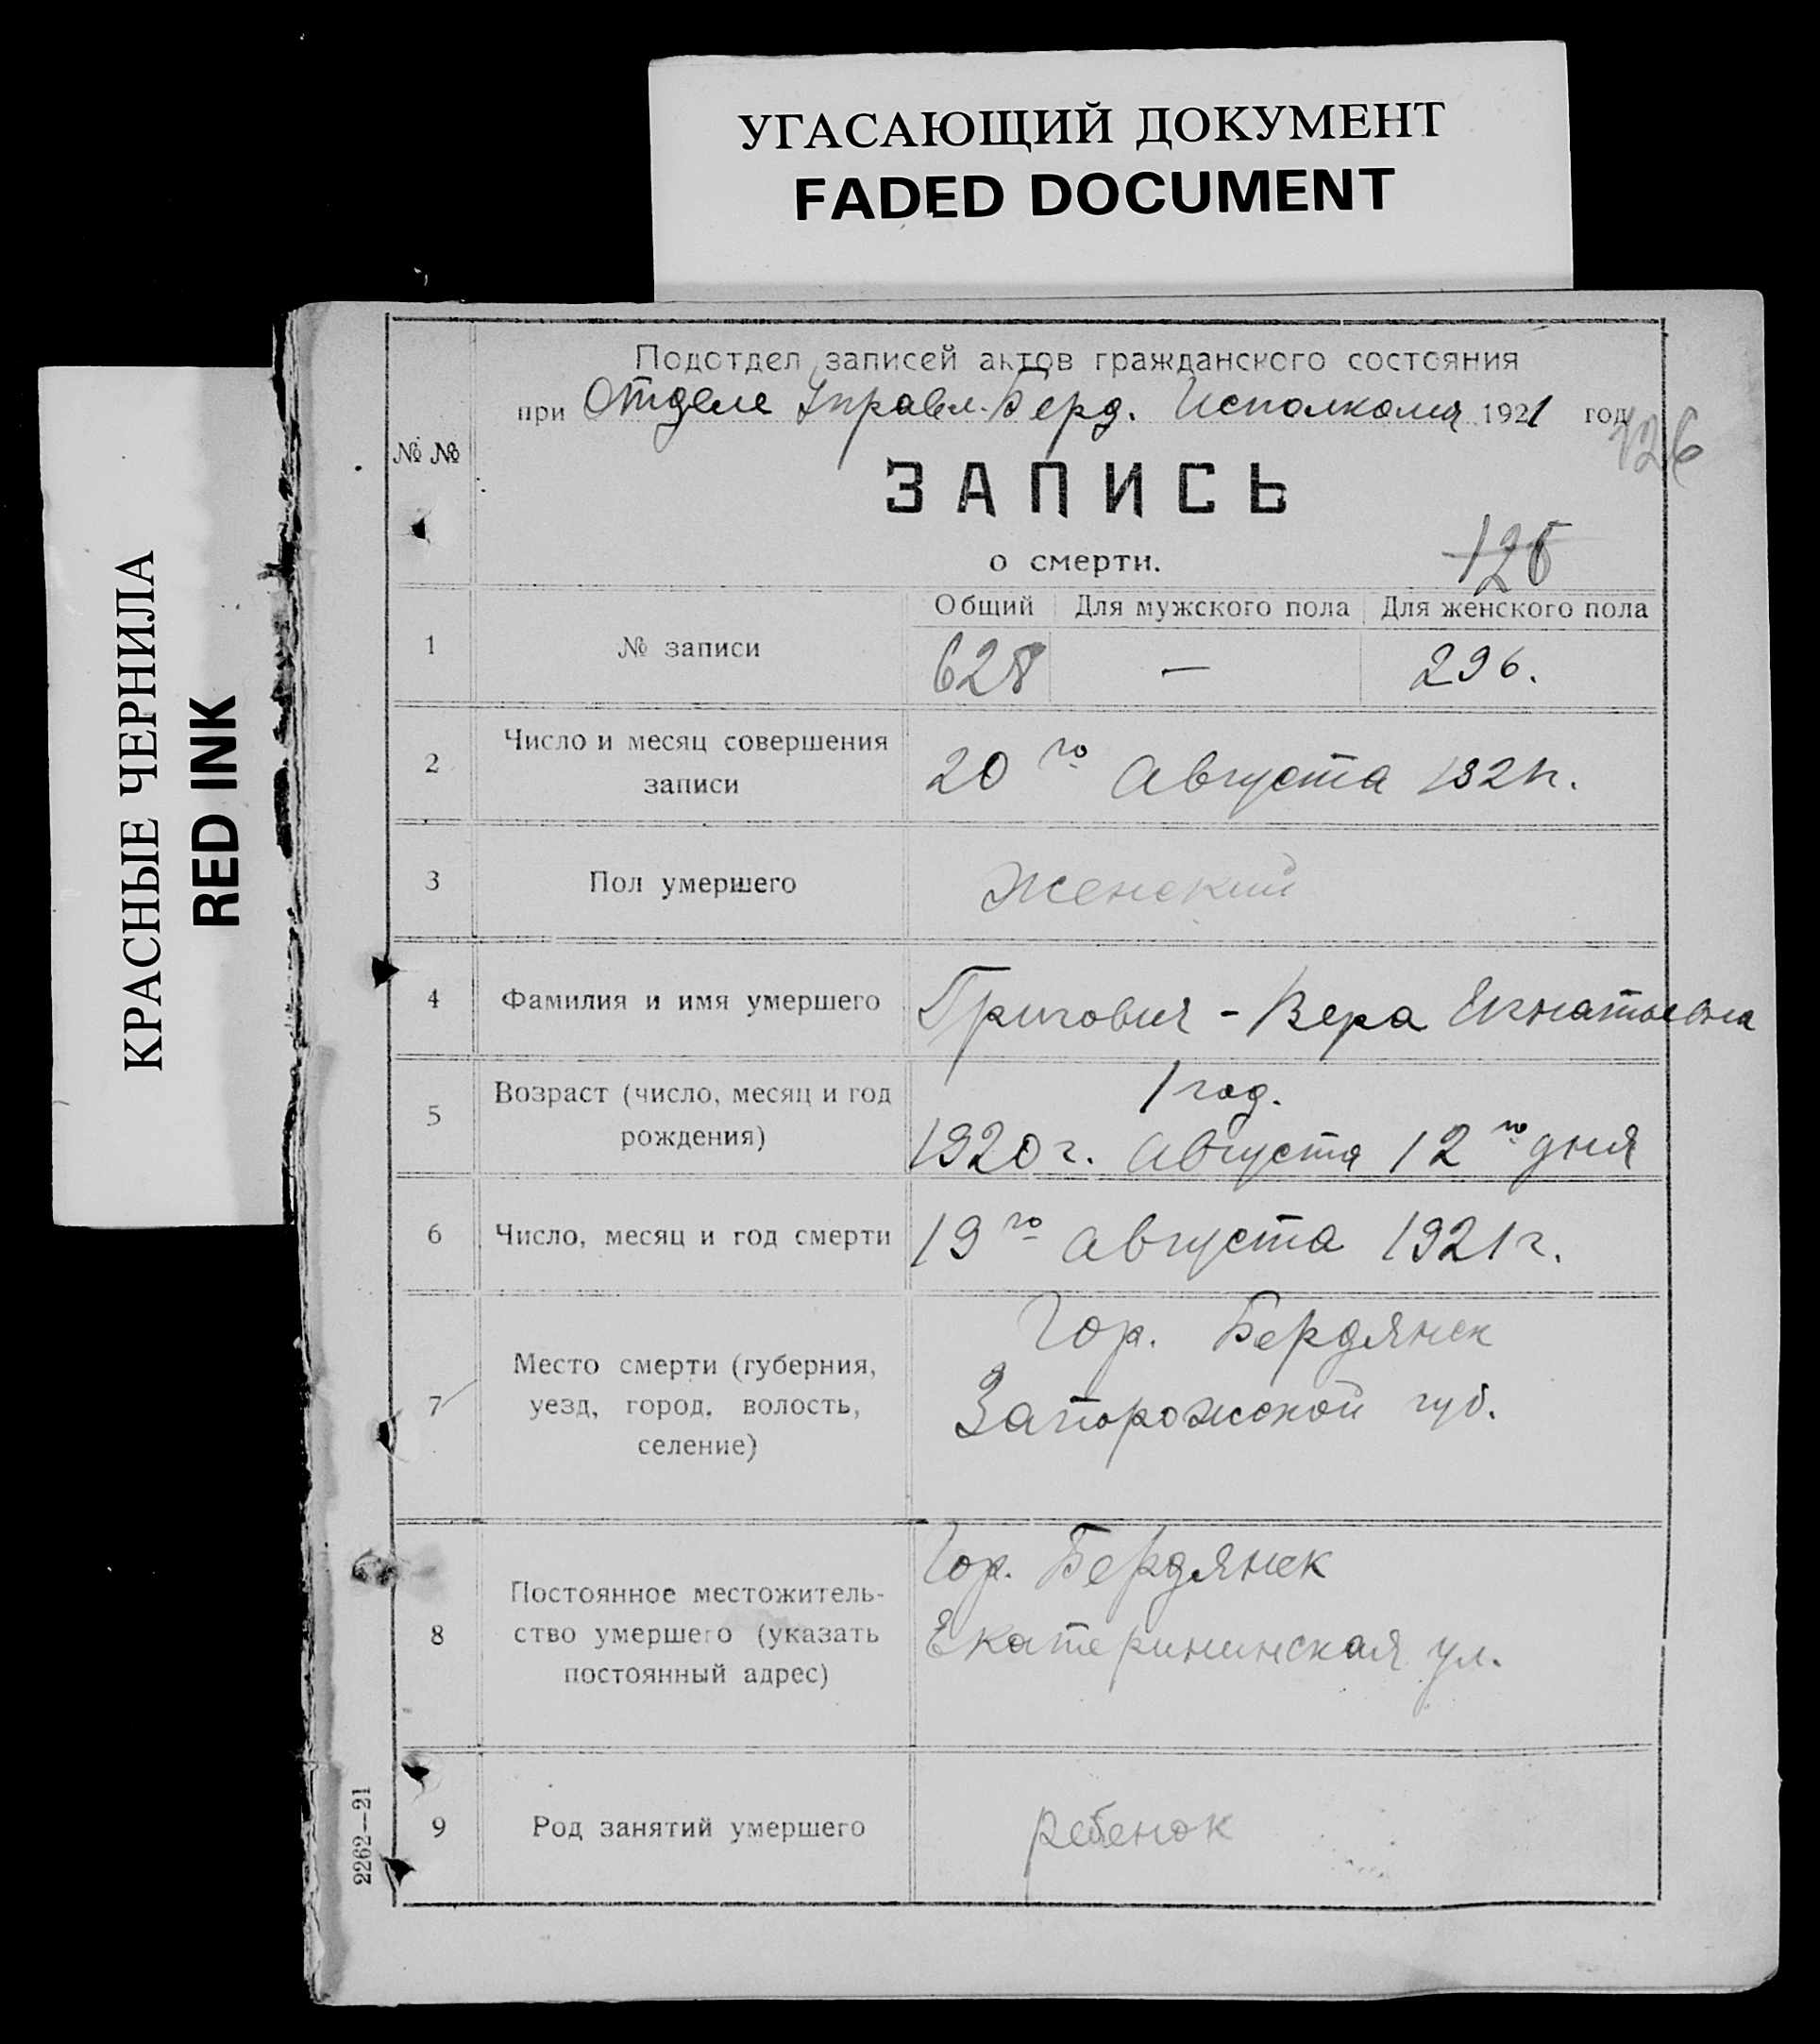 УГАСАЮЩИЙ ДОКУМЕНТ
FADED DOCUMENT
КРАСНЫЕ ЧЕРНИЛА
RED INK
Подотдел записей актов гражданского состояния
при Отделе Управл. Берд. Исполкома 1921 год
126
№ №
ЗАПИСЬ
о смерти.
Общий Для мужского пола Для женского пола
1 № записи 628 — 296.
2 Число и месяц совершения
записи
20го Августа 1921г.
3 Пол умершего Женский
4 Фамилия и имя умершего Григович - Вера Игнатьевна
5 Возраст (число, месяц и год
рождения)
1 год.
1920 г. Августа 12го дня
6 Число, месяц и год смерти 19го Августа 1921 г.
7 Место смерти (губерния,
уезд, город, волость,
селение)
Гор. Бердянск
Запорожской губ.
8 Постоянное местожитель-
ство умершего (указать
постоянный адрес)
Гор. Бердянск
Екатерининская ул.
9 Род занятий умершего ребенок
2262—21